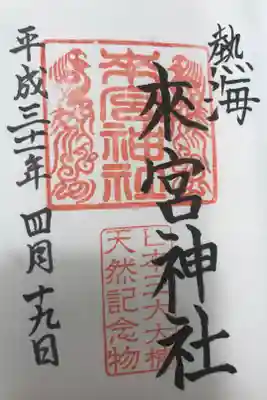 熱海
來宮神社
平成三十一年 四月十九日
来宮神社
日本三大大楠
天然記念物